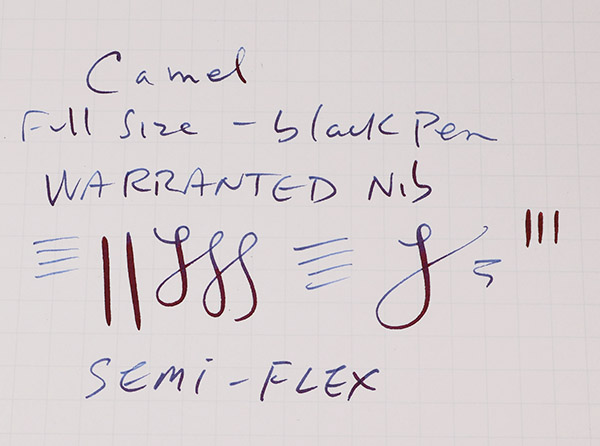 Camel
Full Size - black Pen
WARRANTED Nib
SEMi - FLEX